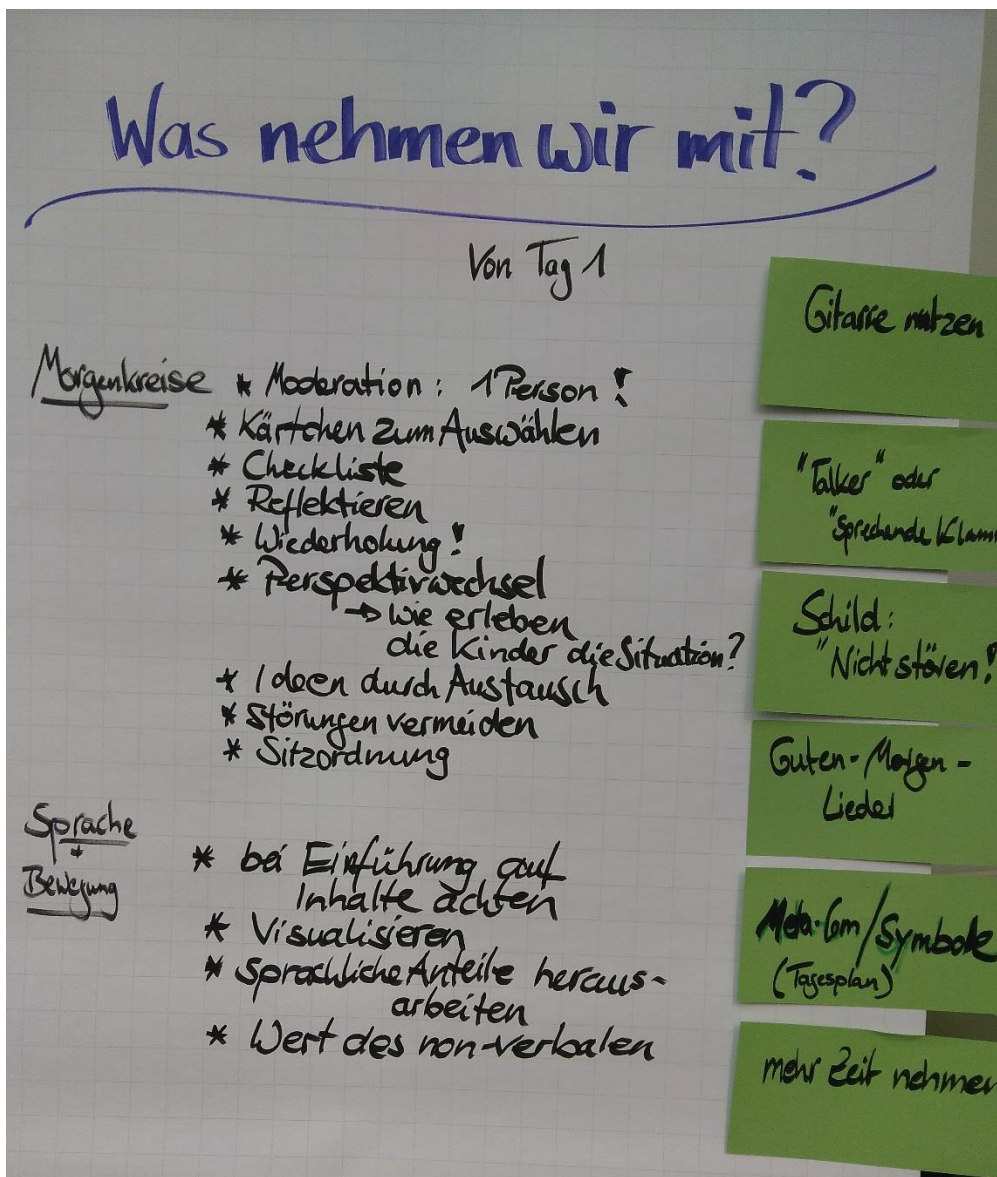 Was nehmen wir mit?
Von Tag 1
Morgenkreise * Moderation: 1 Person!
* Kärtchen zum Auswählen
* Checkliste
* Reflektieren
* Wiederholung!
* Perspektivwechsel
→ wie erleben
die Kinder die Situation?
* Ideen durch Austausch
* Störungen vermeiden
* Sitzordnung
Sprache
+
Bewegung
* bei Einführung auf
Inhalte achten
* Visualisieren
* sprachliche Anteile heraus-
arbeiten
* Wert des non-verbalen
Gitarre nutzen
"Talker" oder
"sprechende Klam
Schild:
"Nicht stören!
Guten-Morgen-
Lieder
Meta-Com/Symbole
(Tagesplan)
mehr Zeit nehmen